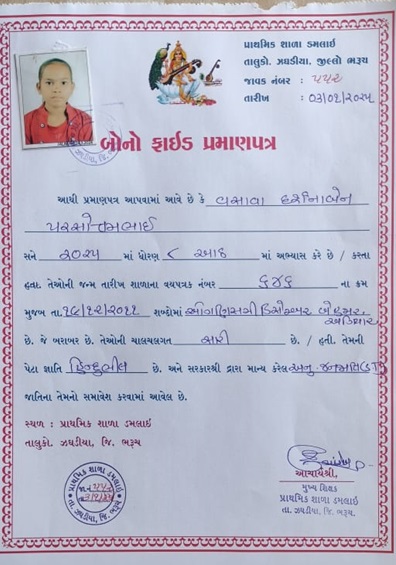 પ્રાથમિક શાળા ડમલાઇ
તાલુકો. ઝઘડીયા. જીલ્લો ભરૂચ
જાવક નંબર : ૫૫૨
તારીખ : ૦૩/૦૧/૨૦૨૫
બોનો ફાઇડ પ્રમાણપત્ર
આથી પ્રમાણપત્ર આપવામાં આવે છે કે વસાવા દર્શનાબેન
પરસોત્તમભાઈ
સને ૨૦૨૫ માં ધોરણ ૮ આઠ માં અભ્યાસ કરે છે / કરતા
હતા. તેઓની જન્મ તારીખ શાળાના વયપત્રક નંબર ૬૪૬ ના ક્રમ
મુજબ તા. ૧૯/૧૨/૨૦૧૧ શબ્દોમાં ઓગણીસમી ડિસેમ્બર બે હજાર
અગિયાર
છે. જે બરાબર છે. તેઓની ચાલચલગત સારી છે. / હતી. તેમની
પેટા જ્ઞાતિ હિન્દુભીલ છે. અને સરકારશ્રી દ્રારા માન્ય કરેલ અનુ. જનજાતિ
જાતિના તેમનો સમાવેશ કરવામાં આવેલ છે.
સ્થળ : પ્રાથમિક શાળા ડમલાઇ
તાલુકો. ઝઘડીયા, જિ. ભરૂચ
પ્રાથમિક શાળા ડમલાઇ
તા. ઝઘડીયા, જિ. ભરૂચ
આચાર્યશ્રી,
મુખ્ય શિક્ષક
પ્રાથમિક શાળા ડમલાઇ
તા. ઝઘડીયા, જિ. ભરૂચ.